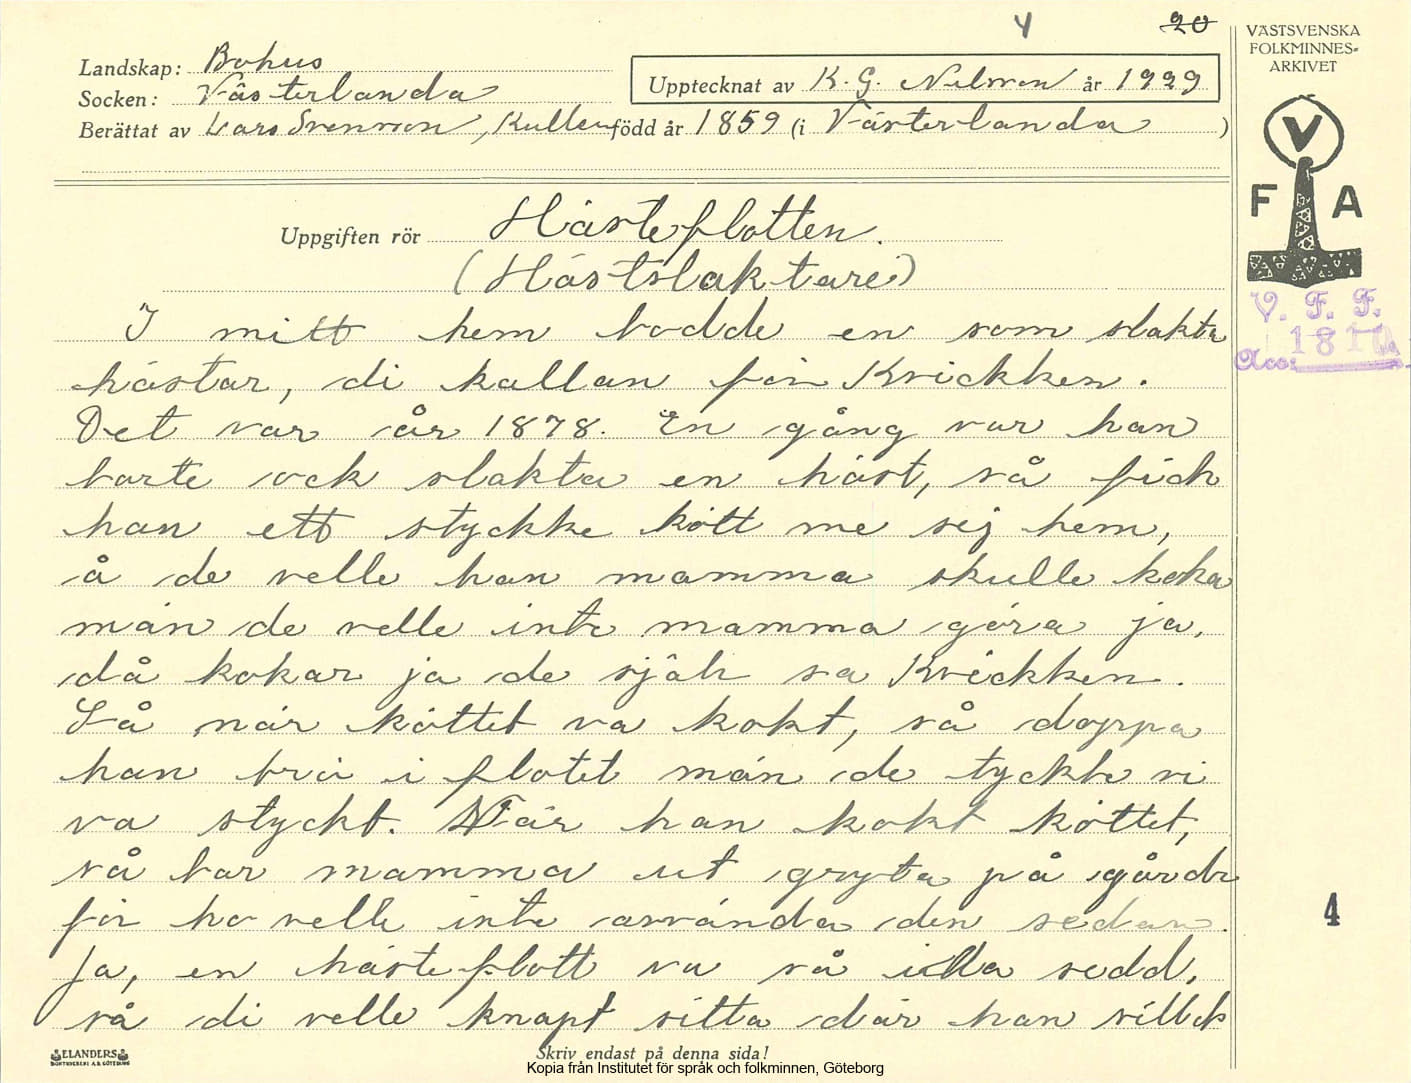 4 20
Landskap: Bohus
Socken: Västerlanda
Upptecknat av K. G. Nilsson år 1929
Berättat av Lars Svensson, Kullen född år 1859 (i Västerlanda )
Uppgiften rör Hästeflotten.
(Hästslaktare)
I mitt hem bodde en som slakta
hästar, di kallan för Kvickken.
Det var år 1878. En gång var han
borte ock slakta en häst, så fick
han ett styckke kött me sej hem,
å de velle han mamma skulle koka
män de velle inte mamma göra ja,
då kokar ja de själv sa Kvickken.
Så när köttet va kokt, så doppa
han brö i flotet män de tyckte vi
va styckt. När han kokt köttet,
så bar mamma ut gryta på gårde
för ho velle inte använda den sedan.
Ja, en hästeflott va så illa sedd,
så di velle knapt sitta där han
Skriv endast på denna sida!
ELANDERS
BOKTRYCKERI A.B. GÖTEBORG
Kopia från Institutet för språk och folkminnen, Göteborg
VÄSTSVENSKA
FOLKMINNES-
ARKIVET
V
F A
V. F. F.
Acc:
4